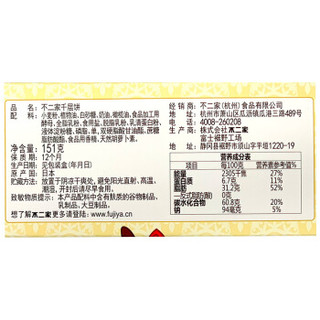 品名：不二家千层饼
配料：小麦粉、植物油、白砂糖、奶油、橄榄油、食品加工用
酵母、全脂乳粉、食用盐、脱脂乳粉、乳清蛋白粉、
液体淀粉糖、磷脂、单，双硬脂酸甘油酯、蔗糖
脂肪酸酯、食用香精、天然胡萝卜素。
净含量：151克
保质期：12个月
生产日期：见包装盒（年/月/日）
原产国：日本
贮藏方法：放置于阴凉干爽处，避免阳光直射、高温、
潮湿，开封后请尽早食用。
致敏物质提示：本产品配料中含有麸质的谷物制品、
乳制品、大豆制品。
想了解不二家更多详情请登陆 www.fujiya.cn
经销商：不二家（杭州）食品有限公司
地址：杭州市萧山区瓜沥镇临港三路489号
电话：4008-260208
生产商：株式会社不二家
富士裾野工场
地址：静冈县裾野市须山字平芝1220-19
营养成分表
项目 每100克 营养素参考值%
能量 2305千焦 27%
蛋白质 6.7克 11%
脂肪 31.2克 52%
-反式脂肪(酸) 0克
碳水化合物 60.8克 20%
钠 94毫克 5%